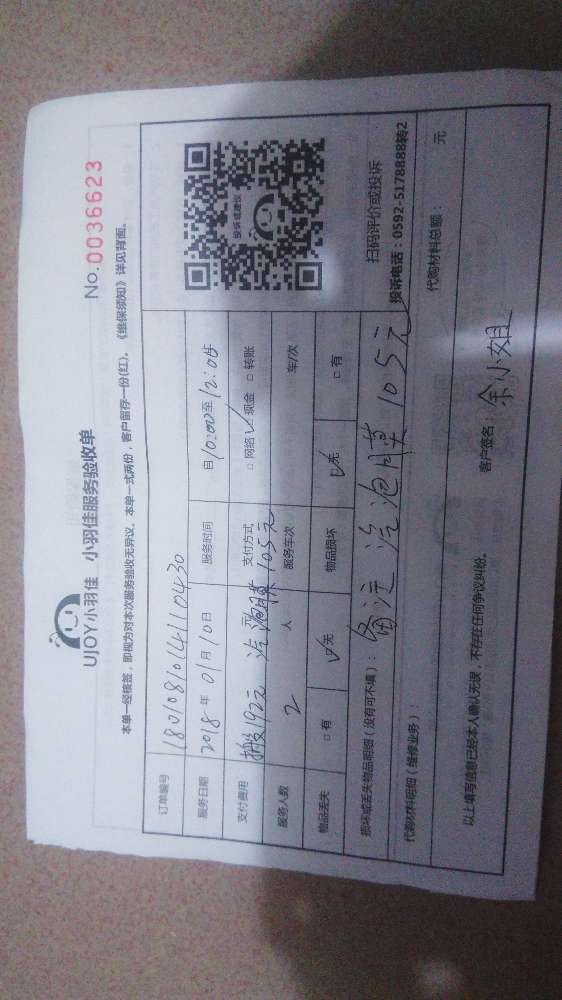 UJOY小羽佳 小羽佳服务验收单 No.0036623
本单一经核签，即视为对本次服务验收无异议。本单一式两份，客户留存一份(红)。《维保须知》详见背面。
订单编号 180108101411 0430
服务日期 2018年01月10日 服务时间 自10:00至12:04
支付费用 搬192元 汽泡膜105元 支付方式 □网络 ☑现金 □转账
服务人数 2 人 服务车次 车/次
物品丢失 □有 ☑无 物品损坏 ☑无 □有
扫码评价或投诉
投诉电话：0592-5178888转2
损坏或丢失物品明细（没有可不填）：备注 汽泡膜105元
代购材料明细（维修业务）： 代购材料总额： 元
以上填写信息已经本人确认无误，不存在任何争议纠纷。 客户签名：余小姐